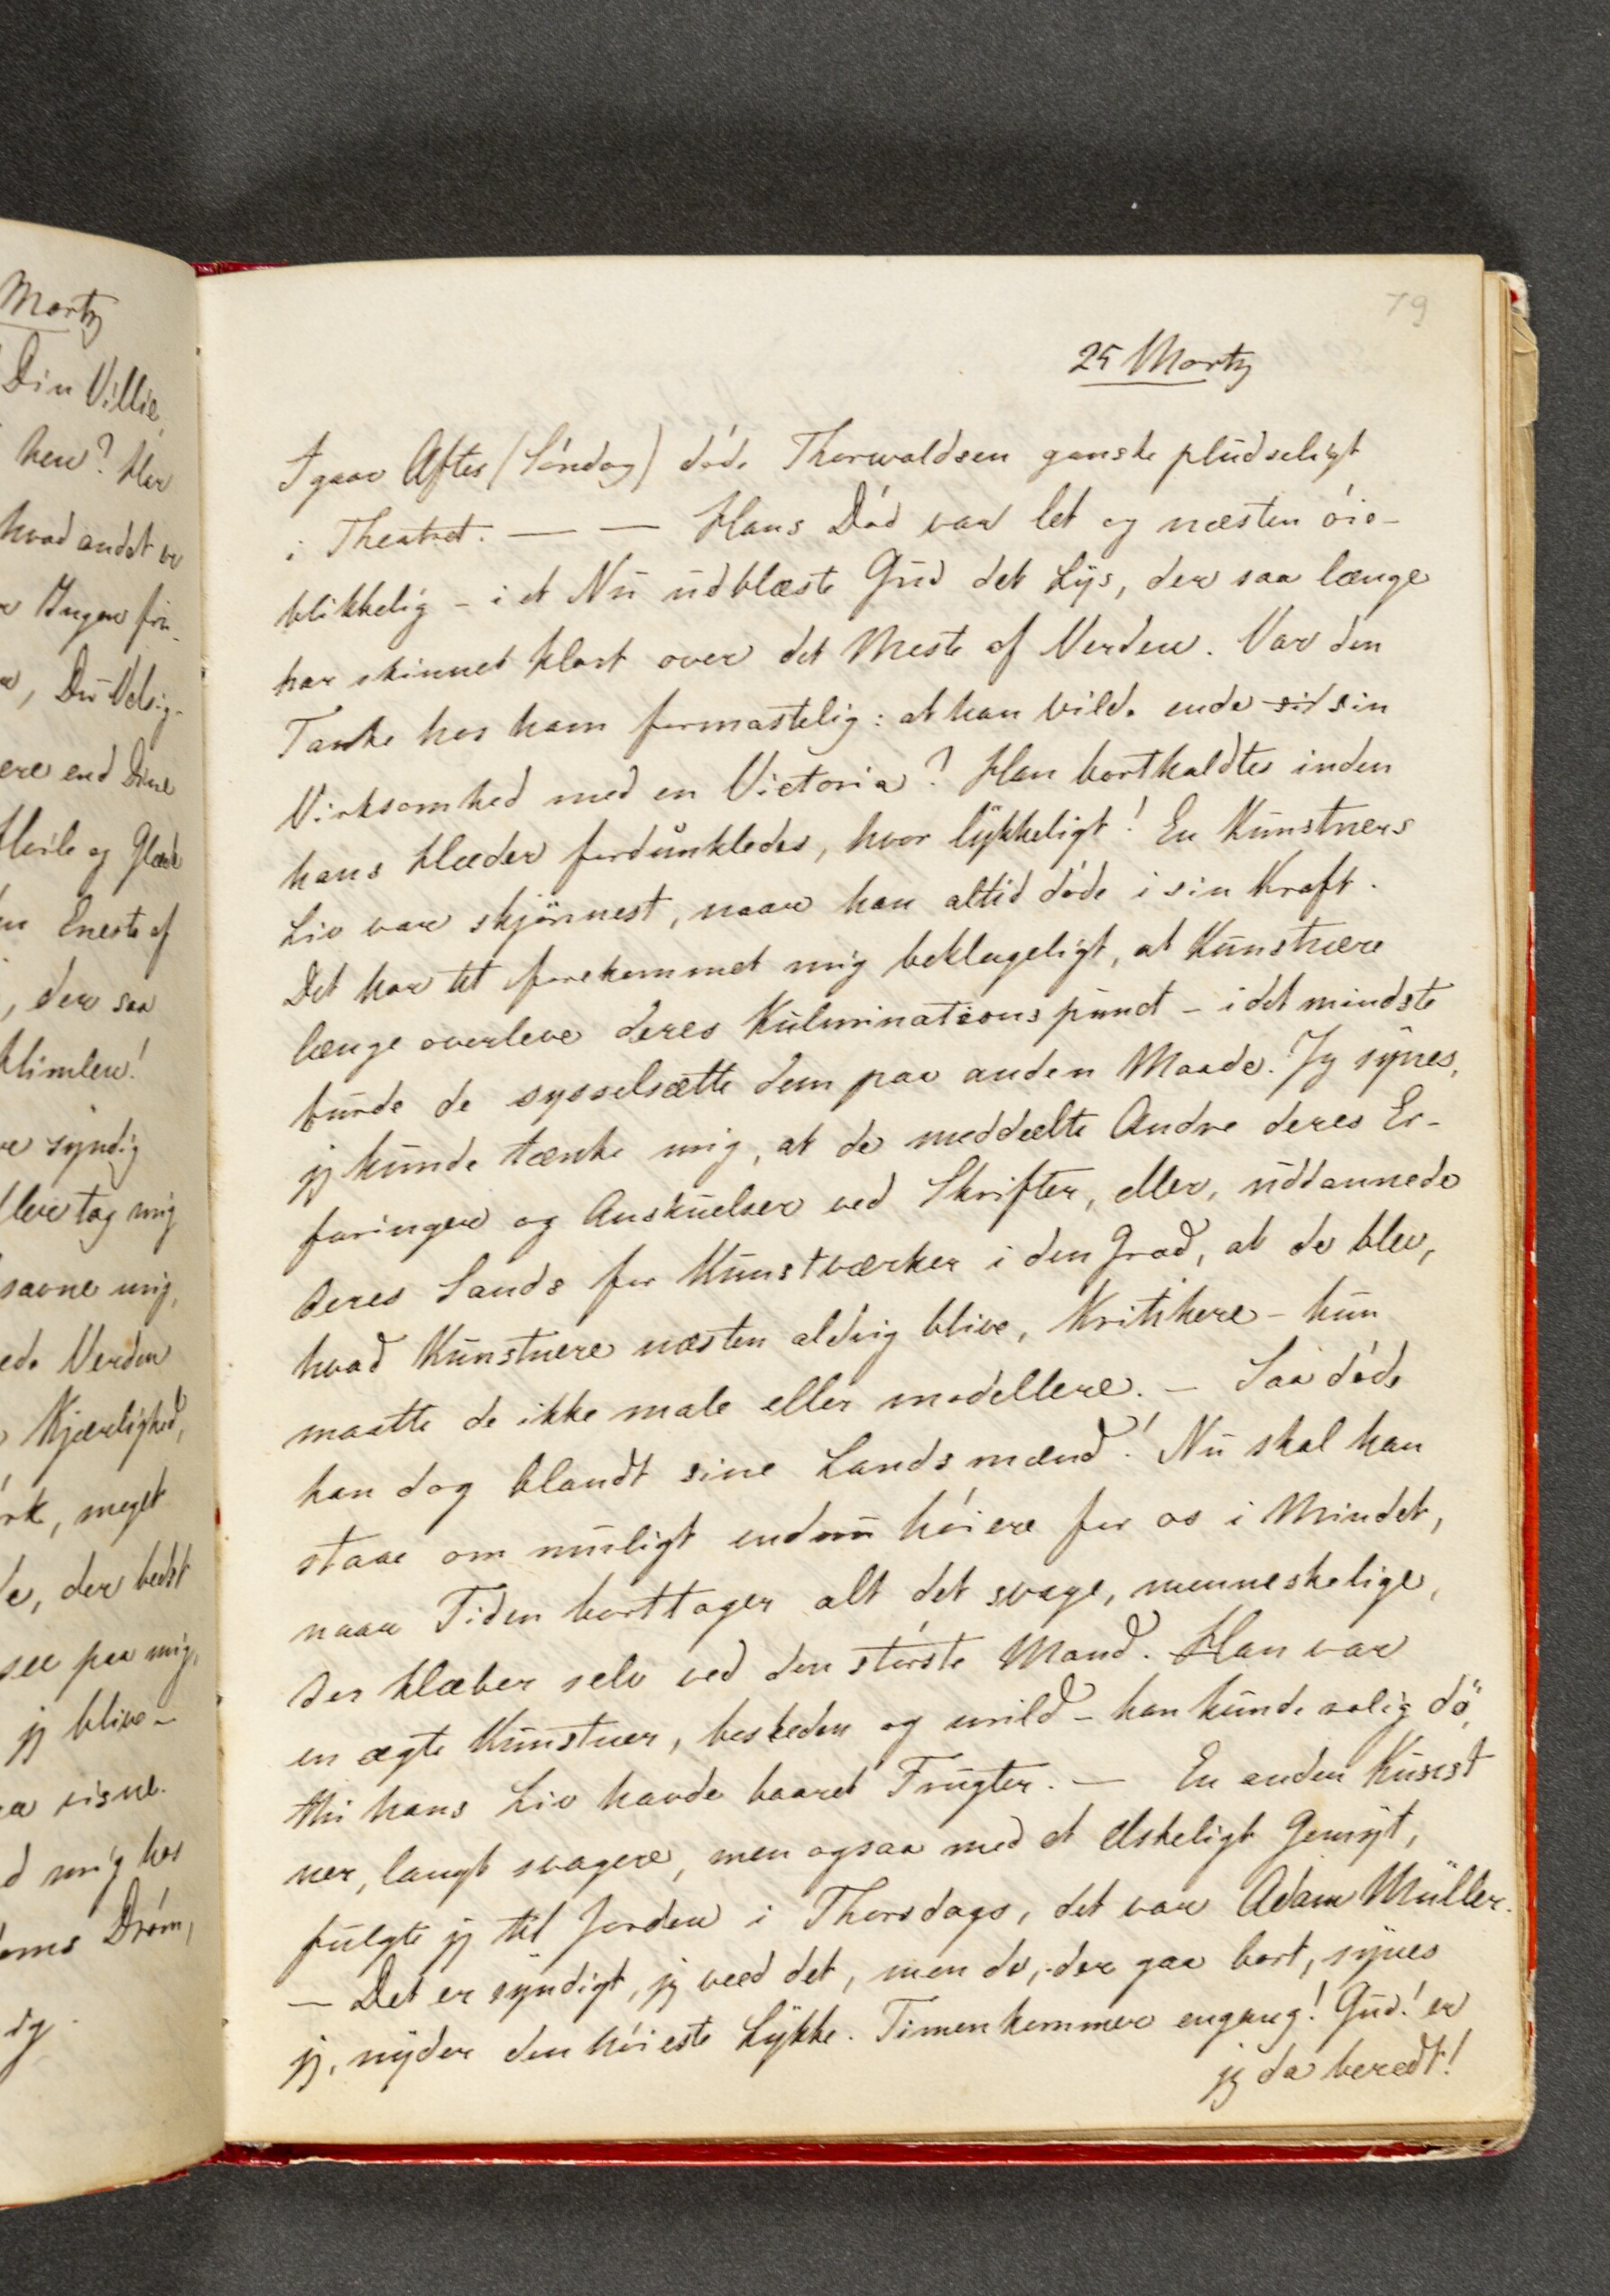 Martz
Din Villie,
hen? Har
hvad andet er
Ingen fin-
, Du Velsig-
ere end Dine
Hvile og Glæde
Eneste af
, der saa
Himlen!
syndig
tag mig
savne mig,
Verden
Kjærlighed,
, meget
, der bedst
see paa mig,
jeg blive –
visne.
mig hos
Drøm,
79
25 Martz
Igaar Aftes (Søndag) døde Thorwaldsen ganske pludseligt
i Theatret. — — Hans Død var let og næsten øie-
blikkelig – i et Nu udblæste Gud det Lys, der saa længe
har skinnet klart over det Meste af Verden. Var den
Tanke hos ham formastelig: at han vilde ende sit sin
Virksomhed med en Victoria? Han bortkaldtes inden
hans Hæder fordunkledes, hvor lykkeligt! En Kunstners
Liv var skjønnest, naar han altid døde i sin Kraft.
Det har tit forekommet mig beklageligt, at Kunstnere
længe overleve deres Kulminationspunct – i det mindste
burde de sysselsætte dem paa anden Maade. Jeg synes,
jeg kunde tænke mig, at de meddeelte Andre deres Er-
faringer og Anskuelser ved Skrifter, eller, uddannede
deres Sands for Kunstværker i den Grad, at de blev,
hvad Kunstnere næsten aldrig blive, Kritikere – kun
maatte de ikke male eller modellere. – Saa døde
han dog blandt sine Landsmænd! Nu skal han
staae om muligt endnu høiere for os i Mindet,
naar Tiden borttager alt det svage, menneskelige,
der klæber selv ved den største Mand. Han var
en ægte Kunstner, beskeden og mild – han kunde rolig dø,
thi hans Liv havde baaret Frugter. — En anden Kunst
ner, langt svagere, men ogsaa med et elskeligt Gemyt,
fulgte jeg til Jorden i Thorsdags, det var Adam Müller.
— Det er syndigt, jeg veed det, men de, der gaa bort, synes
jeg, nyder den høieste Lykke. Timen kommer engang! Gud! er
jeg da beredt!